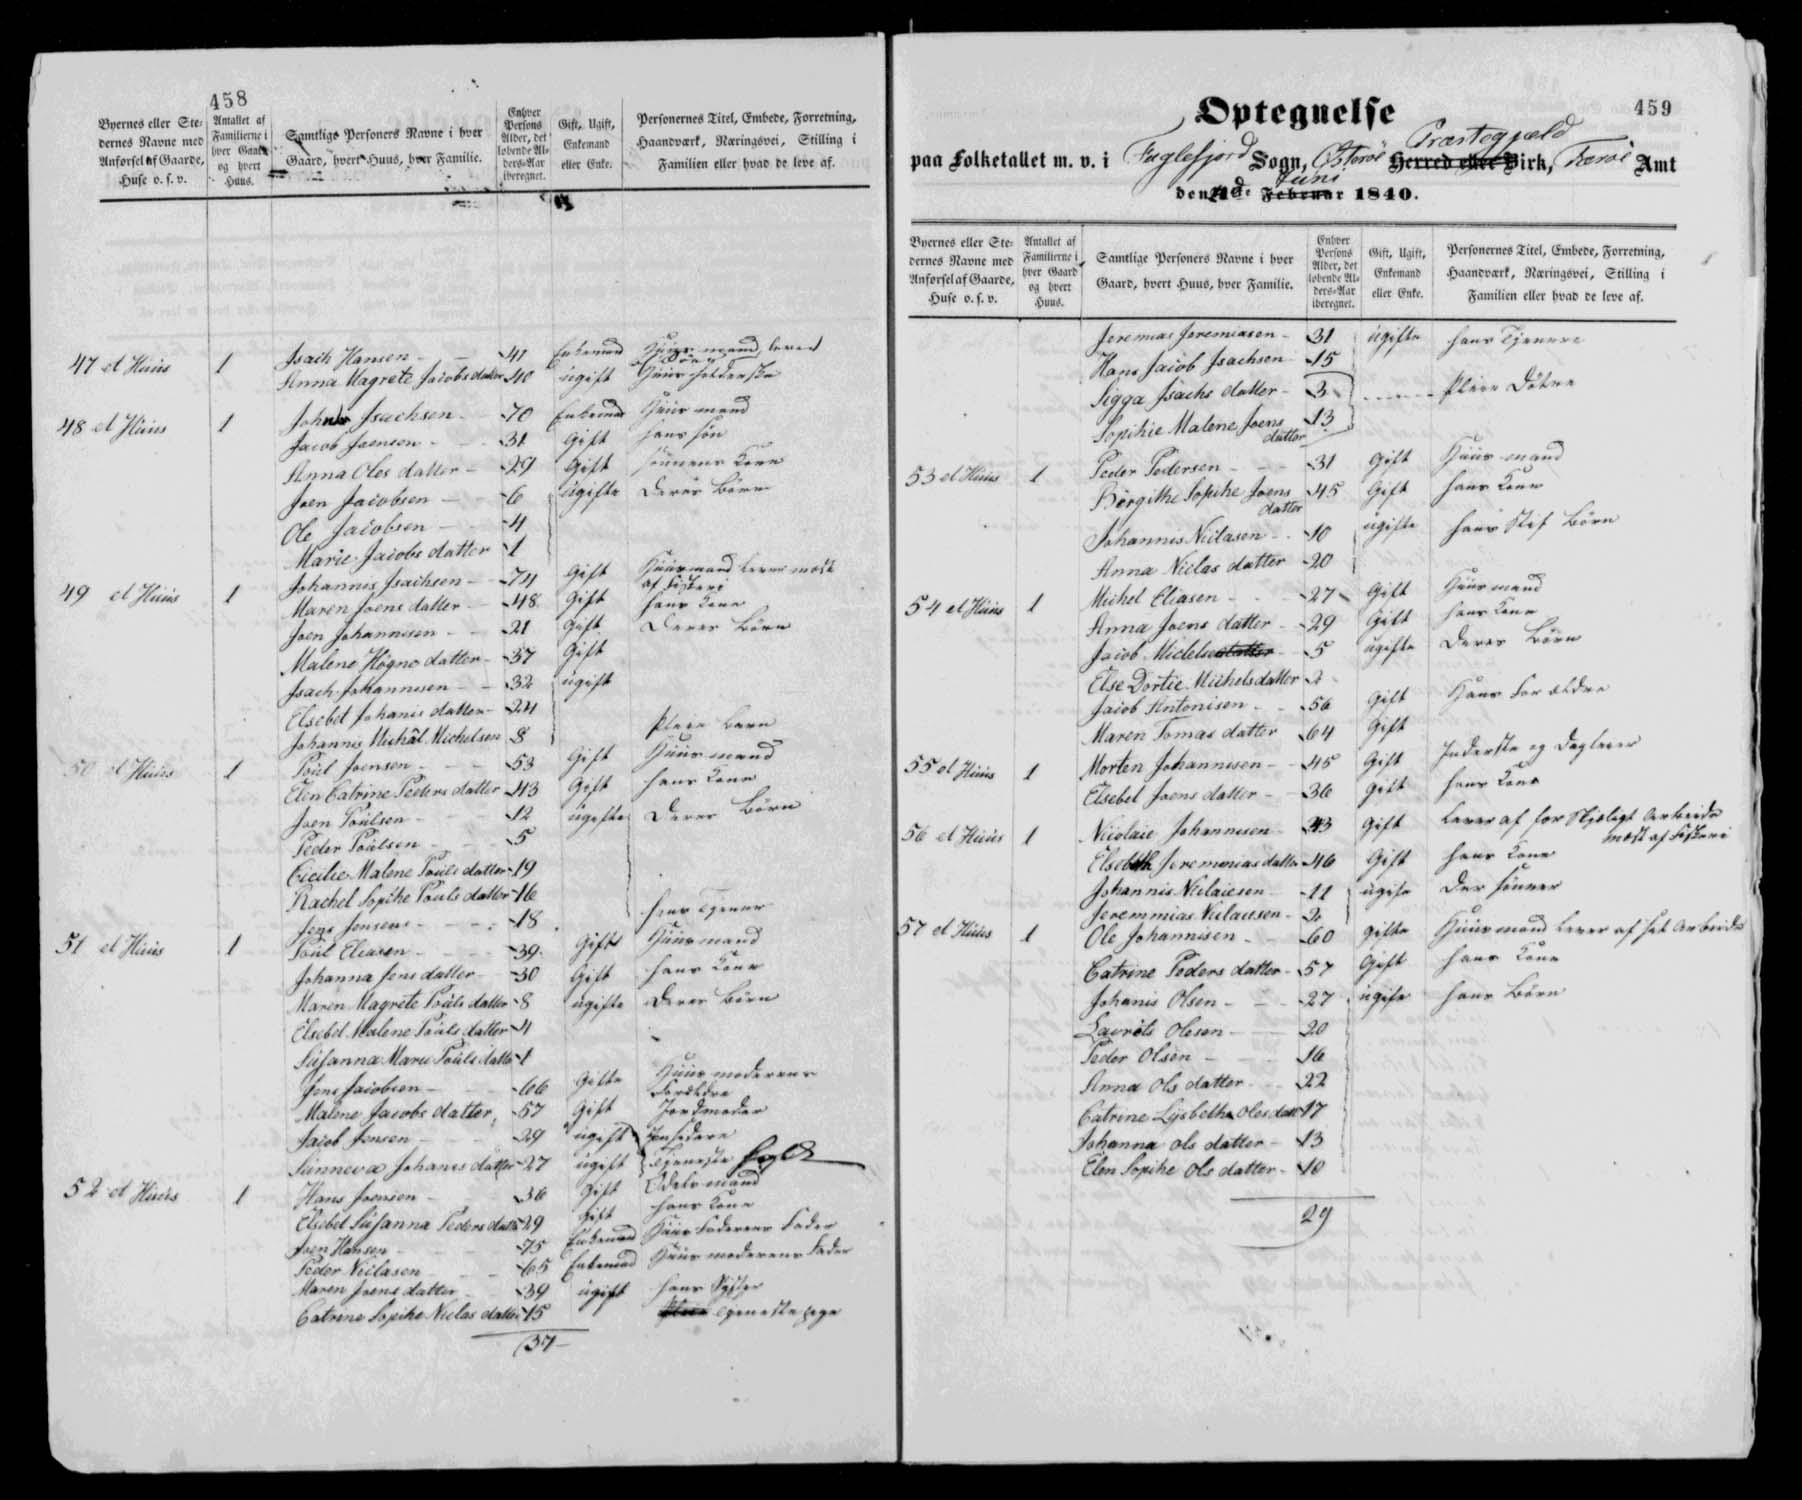 458
Byernes eller Ste-
dernes Navne med
Anførsel af Gaarde,
Huse o. s. v.
Antallet af
Familierne i
hver Gaard
og hvert
Huus.
Samtlige Personers Navne i hver
Gaard, hvert Huus, hver Familie.
Enhver
Persons
Alder, det
løbende Al-
ders-Aar
iberegnet.
Gift, Ugift,
Enkemand
eller Enke.
Personernes Titel, Embede, Forretning,
Haandværk, Næringsvei, Stilling i
Familien eller hvad de leve af.
47 et Huus 1 Isach Hansen 41 Enkemand Huusmand
Anna Magrete Jacobsdatter 40 ugift Huusholderske
48 et Huus 1 Isachsen 70 Enkemand Huusmand
Jacob Joensen 31 Gift hans Søn
Anna Oles datter 29 Gift Sønnens Kone
Joen Jacobsen 6 ugifte Deres Børn
Ole Jacobsen 4
Marie Jacobs datter 1
49 et Huus 1 Johannes Isachsen 74 Gift Huusmand lever mest af Fiskeri
Maren Joens datter 48 Gift hans Kone
Joen Johannesen 21 Gift Deres Børn
Malene Høgne datter 37 Gift
Isach Johannesen 32 ugift
Elsebet Johanis datter 24
Johannis Michâl Michelsen 8 Pleie Barn
50 et Huus 1 Poul Joensen 53 Gift Huusmand
Elen Catrine Peders datter 43 Gift hans Kone
Joen Poulsen 12 ugifte Deres Børn
Peder Poulsen 5
Cicilie Malene Pouls datter 19
Rachel Sophie Pouls datter 16
Jens Jensen 18 hans Tjener
51 et Huus 1 Poul Eliasen 39 Gift Huusmand
Johanna Jens datter 30 Gift hans Kone
Maren Magrete Pouls datter 8 ugifte Deres Børn
Elsebet Malene Pouls datter 4
Susanna Marie Pouls datter 1
Jens Jacobsen 66 Gifte Huusmoderens Forældre
Malene Jacobs datter 57 Gift Jordmoder
Jacob Jensen 29 ugift
Sunneva Johanes datter 27 ugift Tjeneste Folk
52 et Huus 1 Hans Joensen 36 Gift Odelsmand
Elsebet Susanna Peders datter 29 Gift hans Kone
Joen Hansen 75 Enkemand Huusfaderens Fader
Peder Niclasen 65 Enkemand Huusmoderens Fader
Maren Joens datter 39 ugift hans Syster
Catrine Sophie Niclas datter 15 Tjenestepige
37
459
Optegnelse
paa Folketallet m. v. i Fuglefjord Sogn, Østerøe Præstegjæld Herred eller Birk, Færøe Amt
den 4de Juni Februar 1840.
Byernes eller Ste-
dernes Navne med
Anførsel af Gaarde,
Huse o. s. v.
Antallet af
Familierne i
hver Gaard
og hvert
Huus.
Samtlige Personers Navne i hver
Gaard, hvert Huus, hver Familie.
Enhver
Persons
Alder, det
løbende Al-
ders-Aar
iberegnet.
Gift, Ugift,
Enkemand
eller Enke.
Personernes Titel, Embede, Forretning,
Haandværk, Næringsvei, Stilling i
Familien eller hvad de leve af.
Jeremias Jeremiasen 31 ugifte hans Tjenere
Hans Jacob Isachsen 15
Sigga Isachs datter 3 Pleie Døtre
Sophie Malene Joens datter 13
53 et Huus 1 Peder Pedersen 31 Gift Huusmand
Birgithe Sophie Joens datter 45 Gift hans Kone
Johannes Niclasen 10 ugifte hans Stif Børn
Anna Niclas datter 20
54 et Huus 1 Michel Eliasen 27 Gift Huusmand
Anna Joens datter 29 Gift hans Kone
Jacob Michelsen 5 ugifte Deres Børn
Else Dortie Michelsdatter 2
Jacob Antonisen 56 Gift Hans Forældre
Maren Tomas datter 64 Gift
55 et Huus 1 Morten Johannesen 45 Gift Inderste og Dagleier
Elsebet Joens datter 36 Gift hans Kone
56 et Huus 1 Nicolaie Johannesen 43 Gift lever af forskjeligt Arbeide mest af Fiskeri
Elsebeth Jeremmias datter 46 Gift hans Kone
Johannis Niclaiesen 11 ugife Der Sønner
Jeremmias Niclaiesen 2
57 et Huus 1 Ole Johannisen 60 gifte Huusmand lever af sit Arbeide
Catrine Peders datter 57 Gift hans Kone
Johanis Olsen 27 ugife hans Børn
Laurits Olesen 20
Peder Olsen 16
Anna Ols datter 22
Catrine Lisbeth Oles datter 17
Johanna Ols datter 13
Elen Sophie Ols datter 10
29